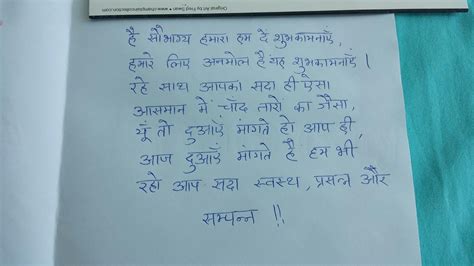 Original Art by Fred Swan • www.championscollection.com
है सौभाग्य हमारा हम दें शुभकामनाएँ,
हमारे लिए अनमोल है यह शुभकामनाएँ।
रहे साथ आपका सदा ही ऐसा
आसमान में चाँद तारों का जैसा,
यूँ तो दुआएँ मांगते हो आप ही,
आज दुआएँ मांगते है हम भी
रहो आप सदा स्वस्थ, प्रसन्न और
सम्पन्न !!